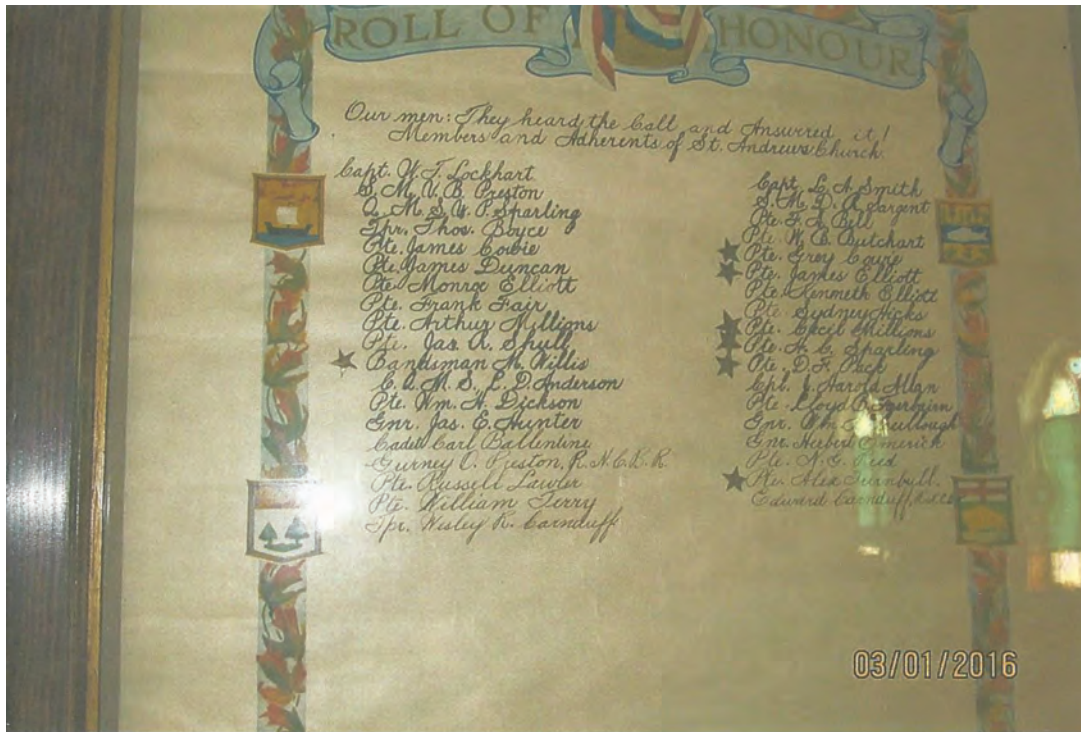 ROLL OF HONOUR
Our men: They heard the Call and Answered it!
Members and Adherents of St. Andrews Church.
Capt. W. T. Lockhart
S. M. V. B. Preston
Q. M. S. W. P. Sparling
Tpr. Thos. Boyce
Pte. James Cowie
Pte. James Duncan
Pte. Monroe Elliott
Pte. Frank Fair
Pte. Arthur Millions
Pte. Jas. A. Shyll
Bandsman H. Willis
C. Q. M. S. L. D. Anderson
Pte. Wm. H. Dickson
Gnr. Jas. E. Hunter
Cadet Carl Ballentine
Gurney O. Preston, R. N. C. V. R.
Pte. Russell Lawler
Pte. William Terry
Tpr. Wesley R. Carnduff
Capt. L. A. Smith
S. M. D. A. Sargent
Pte. F. A. Bell
Pte. W. B. Butchart
Pte. Grey Cowie
Pte. James Elliott
Pte. Kenneth Elliott
Pte. Sydney Hicks
Pte. Cecil Millions
Pte. H. C. Sparling
Pte. D. F. Pack
Cpl. J. Harold Allan
Pte. Lloyd
Gnr. Wm.
Gnr. Herbert Emerick
Pte. N. G. Reed
Pte. Alex Turnbull.
Edward Carnduff,
03/01/2016